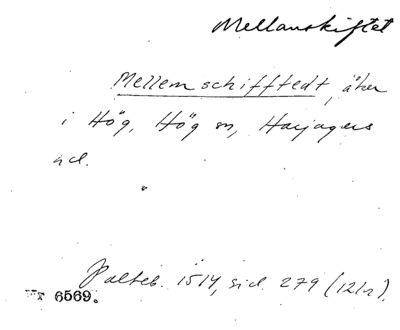 Mellanskiftet
Mellem schifftedt, åker
i Hög, Hög sn, Harjagers
hd.
Palteb. 1514, sid. 279 (12/2).
Nr 6569.